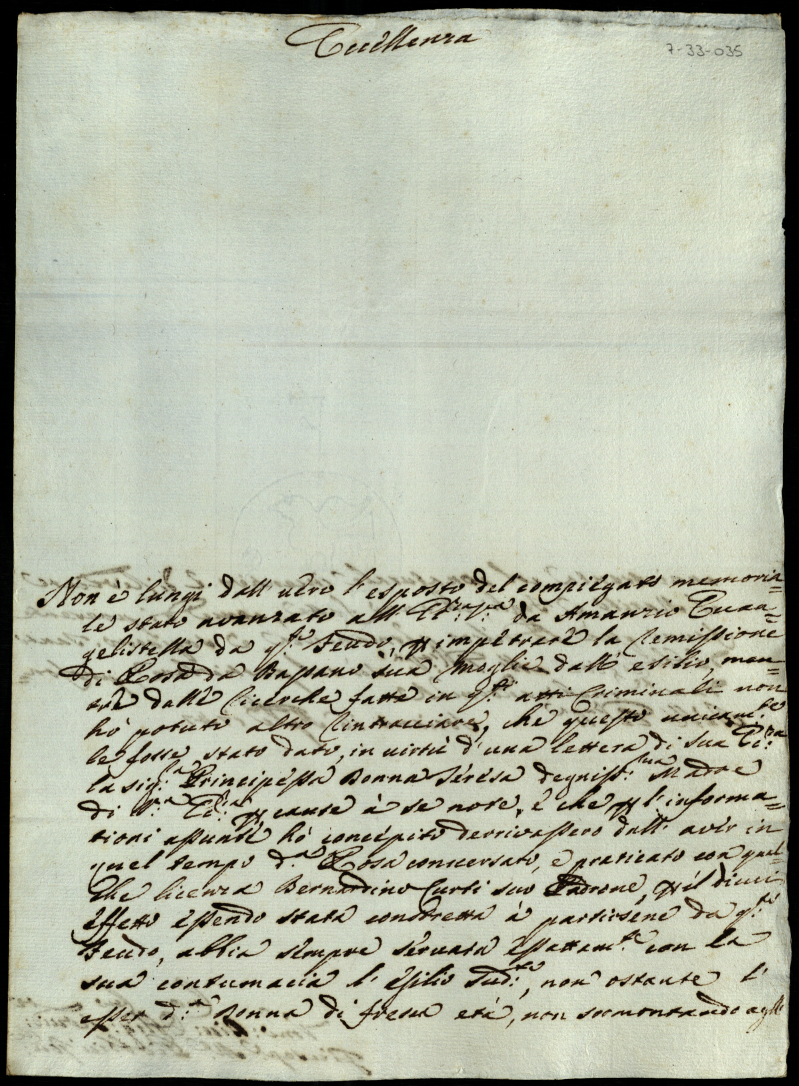 Eccellenza
7-33-035
Non è lungi dall uero l'esposto del compiegato memoria=
le stato auanzato all' Ecc. V.ra da Amanzio Euan=
gelistella da q.to Feudo, p impetrare la remissione
di Rosa da Bassano sua moglie dall esilio, men=
tre dalle ricerche fatte in q.ti atti Criminali non
hò potuto altro rintracciare, che questo unicam.te
le fosse stato dato, in uirtù d'una lettera di sua Ecc.za
la sig.ra Principessa Donna Teresa degniss.ma Madre
di V.ra Ecc.za p cause à se note, e che p l'informa=
tioni assunte hò concepito derriuassero dall' auer in
quel tempo d.a Rosa conuersato, e praticato con qual=
che licenza Bernardino Curti suo Padrone, p il di cui
effetto essendo stata constretta à partirsene da q.to
Feudo, abbia sempre seruata essattam.te con la
sua contumacia l'esilio sud.to, non ostante l'
esser d.a Donna di fresca età, non sormontando agli